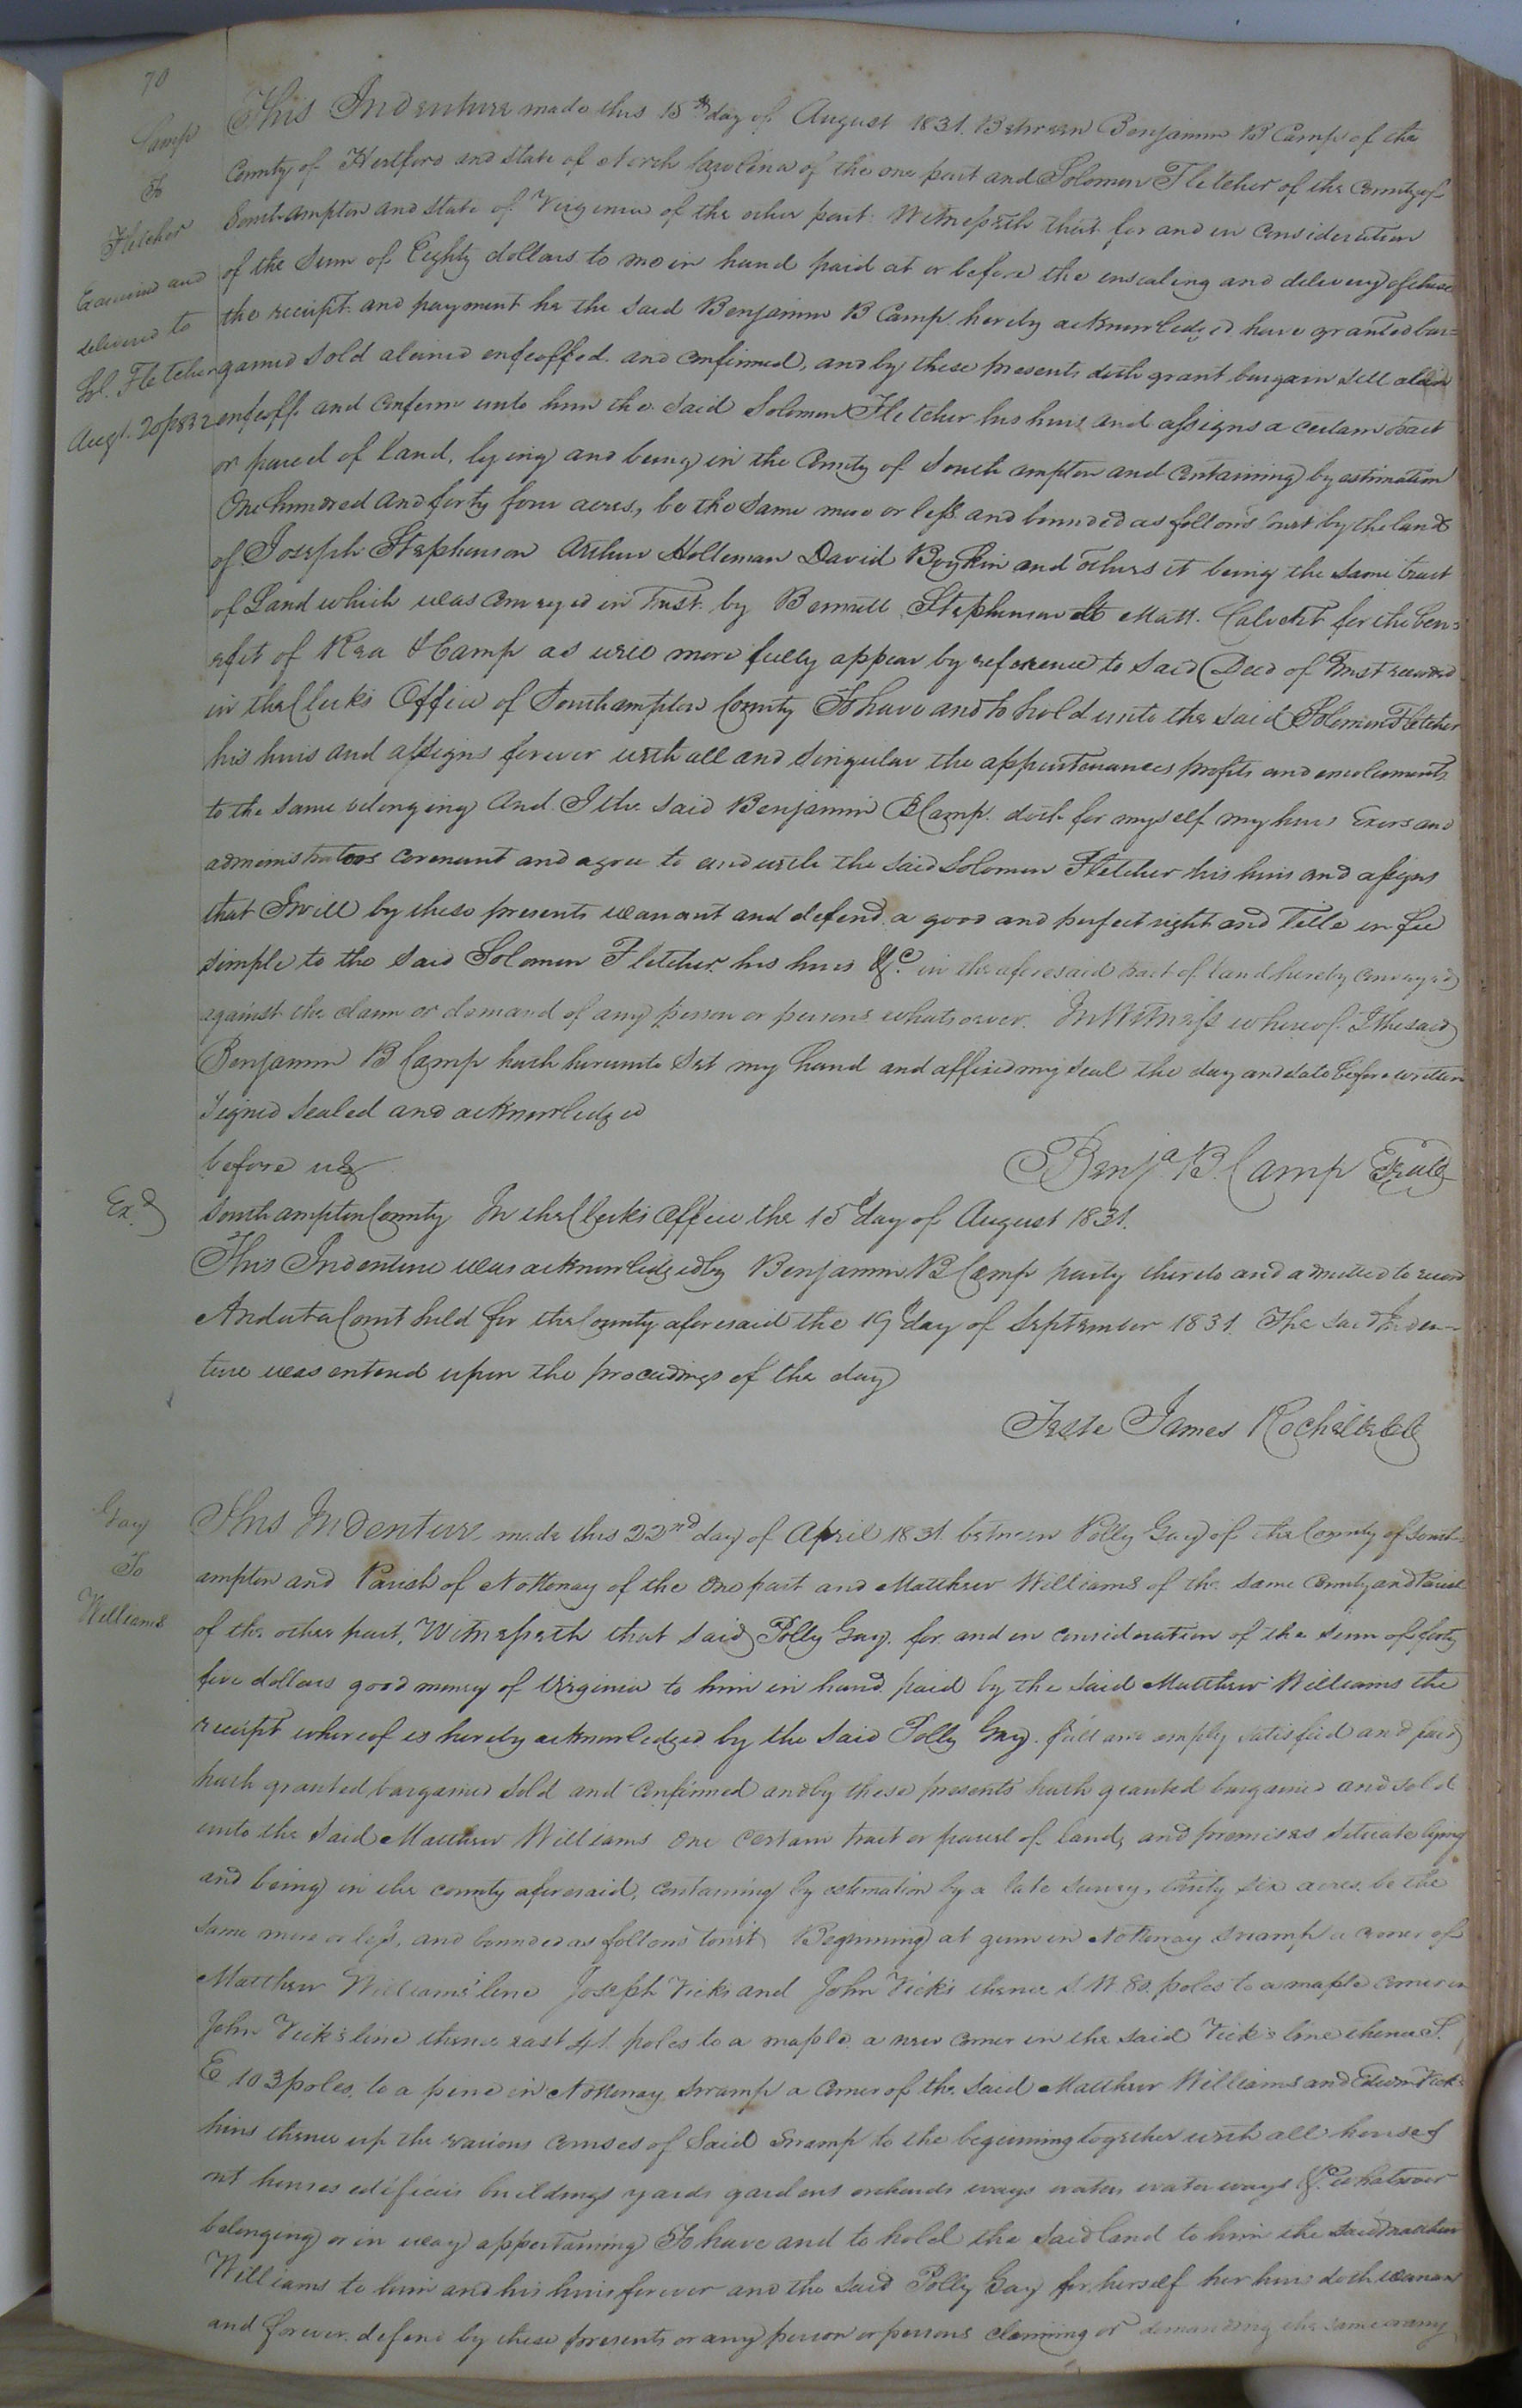 70
Camp
To
Fletcher
Examined and
delivered to
Sol. Fletcher
Augt. 20th 1832
This Indenture made this 15th day of August 1831. Between Benjamin B Camp of the
County of Hertford and State of North Carolina of the one part and Solomon Fletcher of the County of
Southampton and State of Virginia of the other part: Witnesseth that for and in Consideration
of the Sum of Eighty dollars to me in hand paid at or before the ensealing and delivery of these
the receipt and payment he the said Benjamin B Camp hereby acknowledged have granted bar=
gained sold aliened enfeoffed and confirmed, and by these presents doth grant bargain sell alien
enfeoff and confirm unto him the said Solomon Fletcher his heirs and assigns a certain tract
or parcel of land, lying and being in the County of Southampton and Containing by estimation
One hundred and forty four acres, be the same more or less and bounded as follows towit by the lands
of Joseph Stephenson Arthur Holleman David Boykin and others it being the same tract
of Land which was conveyed in Trust by Stephenson to Matt. Calvert for the ben=
efit of Rea & Camp as will more fully appear by reference to said Deed of Trust recorded
in the Clerks Office of Southampton County To have and to hold unto the said Solomon Fletcher
his heirs and assigns forever with all and singular the appurtenances profits and emoluments
to the same belonging And I the said Benjamin B Camp doth for myself my heirs Exors and
administrators covenant and agree to and with the said Solomon Fletcher his heirs and assigns
that I will by these presents warrant and defend a good and perfect right and Title in fee
simple to the said Solomon Fletcher his heirs &c. in the aforesaid tract of land hereby conveyed
against the claim or demand of any person or persons whatsoever. In Witness whereof I the said
Benjamin B Camp hath hereunto Set my hand and affixed my seal the day and date before written
Signed Sealed and acknowledged
before us
Benja. B. Camp Seal
Exd
Southampton County In the Clerks Office the 15 day of August 1831.
This Indenture was acknowledged by Benjamin B Camp party thereto and admitted to record
And at a Court held for the County aforesaid the 19 day of September 1831. The said Inden-
ture was entered upon the proceedings of the day
Teste James Rochelle Clk
Gay
To
Williams
This Indenture made this 22nd day of April 1831. between Polly Gay of the County of South-
ampton and Parish of Nottoway of the one part and Matthew Williams of the same County and Parish
of the other part, Witnesseth that said Polly Gay for and in consideration of the sum of forty
five dollars good money of Virginia to him in hand paid by the said Matthew Williams the
receipt whereof is hereby acknowledged by the said Polly Gay full and amply satisfied and paid
hath granted bargained sold and confirmed and by these presents hath granted bargained and sold
unto the said Matthew Williams one certain tract or parcel of land, and premises situate lying
and being in the county aforesaid, containing by estimation by a late survey, thirty six acres be the
same more or less, and bounded as follows towit Beginning at gum in Nottoway Swamp a corner of
Matthew Williams' line Joseph Vicks and John Vick's thence S.W. 80. poles to a maple corner in
John Vick's line thence east 41. poles to a maple a new corner in the said Vick's line thence S.
E 103 poles, to a pine in Nottoway Swamp a corner of the said Matthew Williams and
thence up the various courses of said Swamp to the beginning together with all houses
out houses edifices buildings yards gardens orchards ways waters water ways &c. whatsoever
belonging or in way appertaining To have and to hold the said land to him the said Matthew
Williams to him and his heirs forever and the said Polly Gay for herself her heirs doth warrant
and forever defend by these presents or any person or persons claiming or demanding the same or any